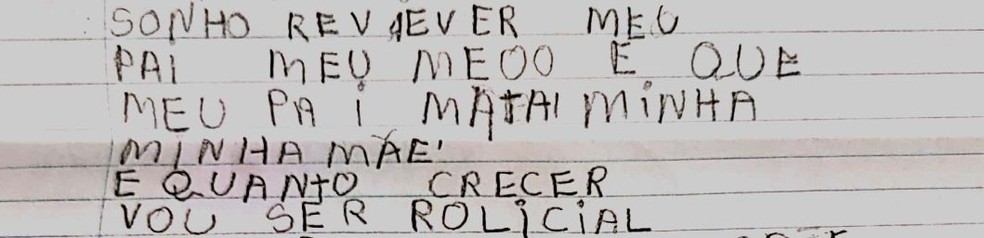 SONHO REVAEVER MEU
PAI MEU MEDO E QUE
MEU PAI MATAI MINHA
MINHA MÃE'
E QUANTO CRECER
VOU SER ROLICIAL